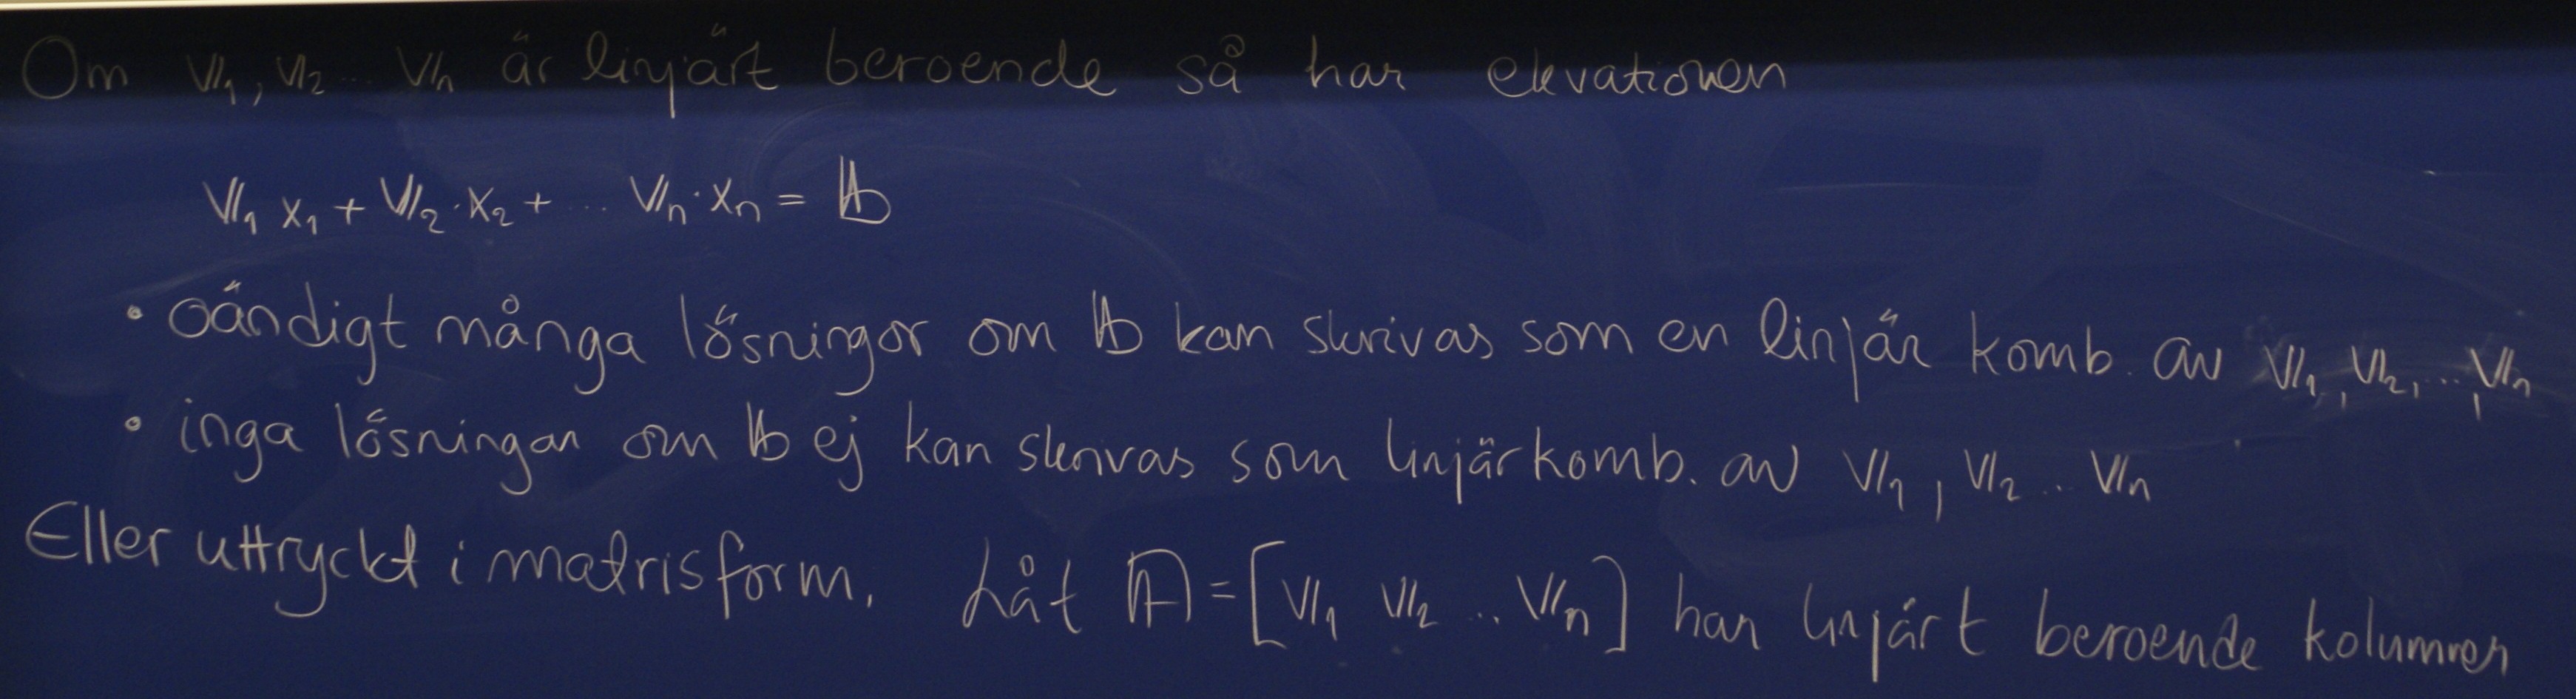 Om V₁, V₂ ... Vn är linjärt beroende så har ekvationen
V₁ x₁ + V₂ · x₂ + ... Vn · xn = b
• oändigt många lösningar om b kan skrivas som en linjär komb. av V₁, V₂, ..., Vn
• inga lösningar om b ej kan skrivas som linjärkomb. av V₁, V₂ .. Vn
Eller uttryckt i matrisform. Låt A = [V₁ V₂ .. Vn] har linjärt beroende kolumner